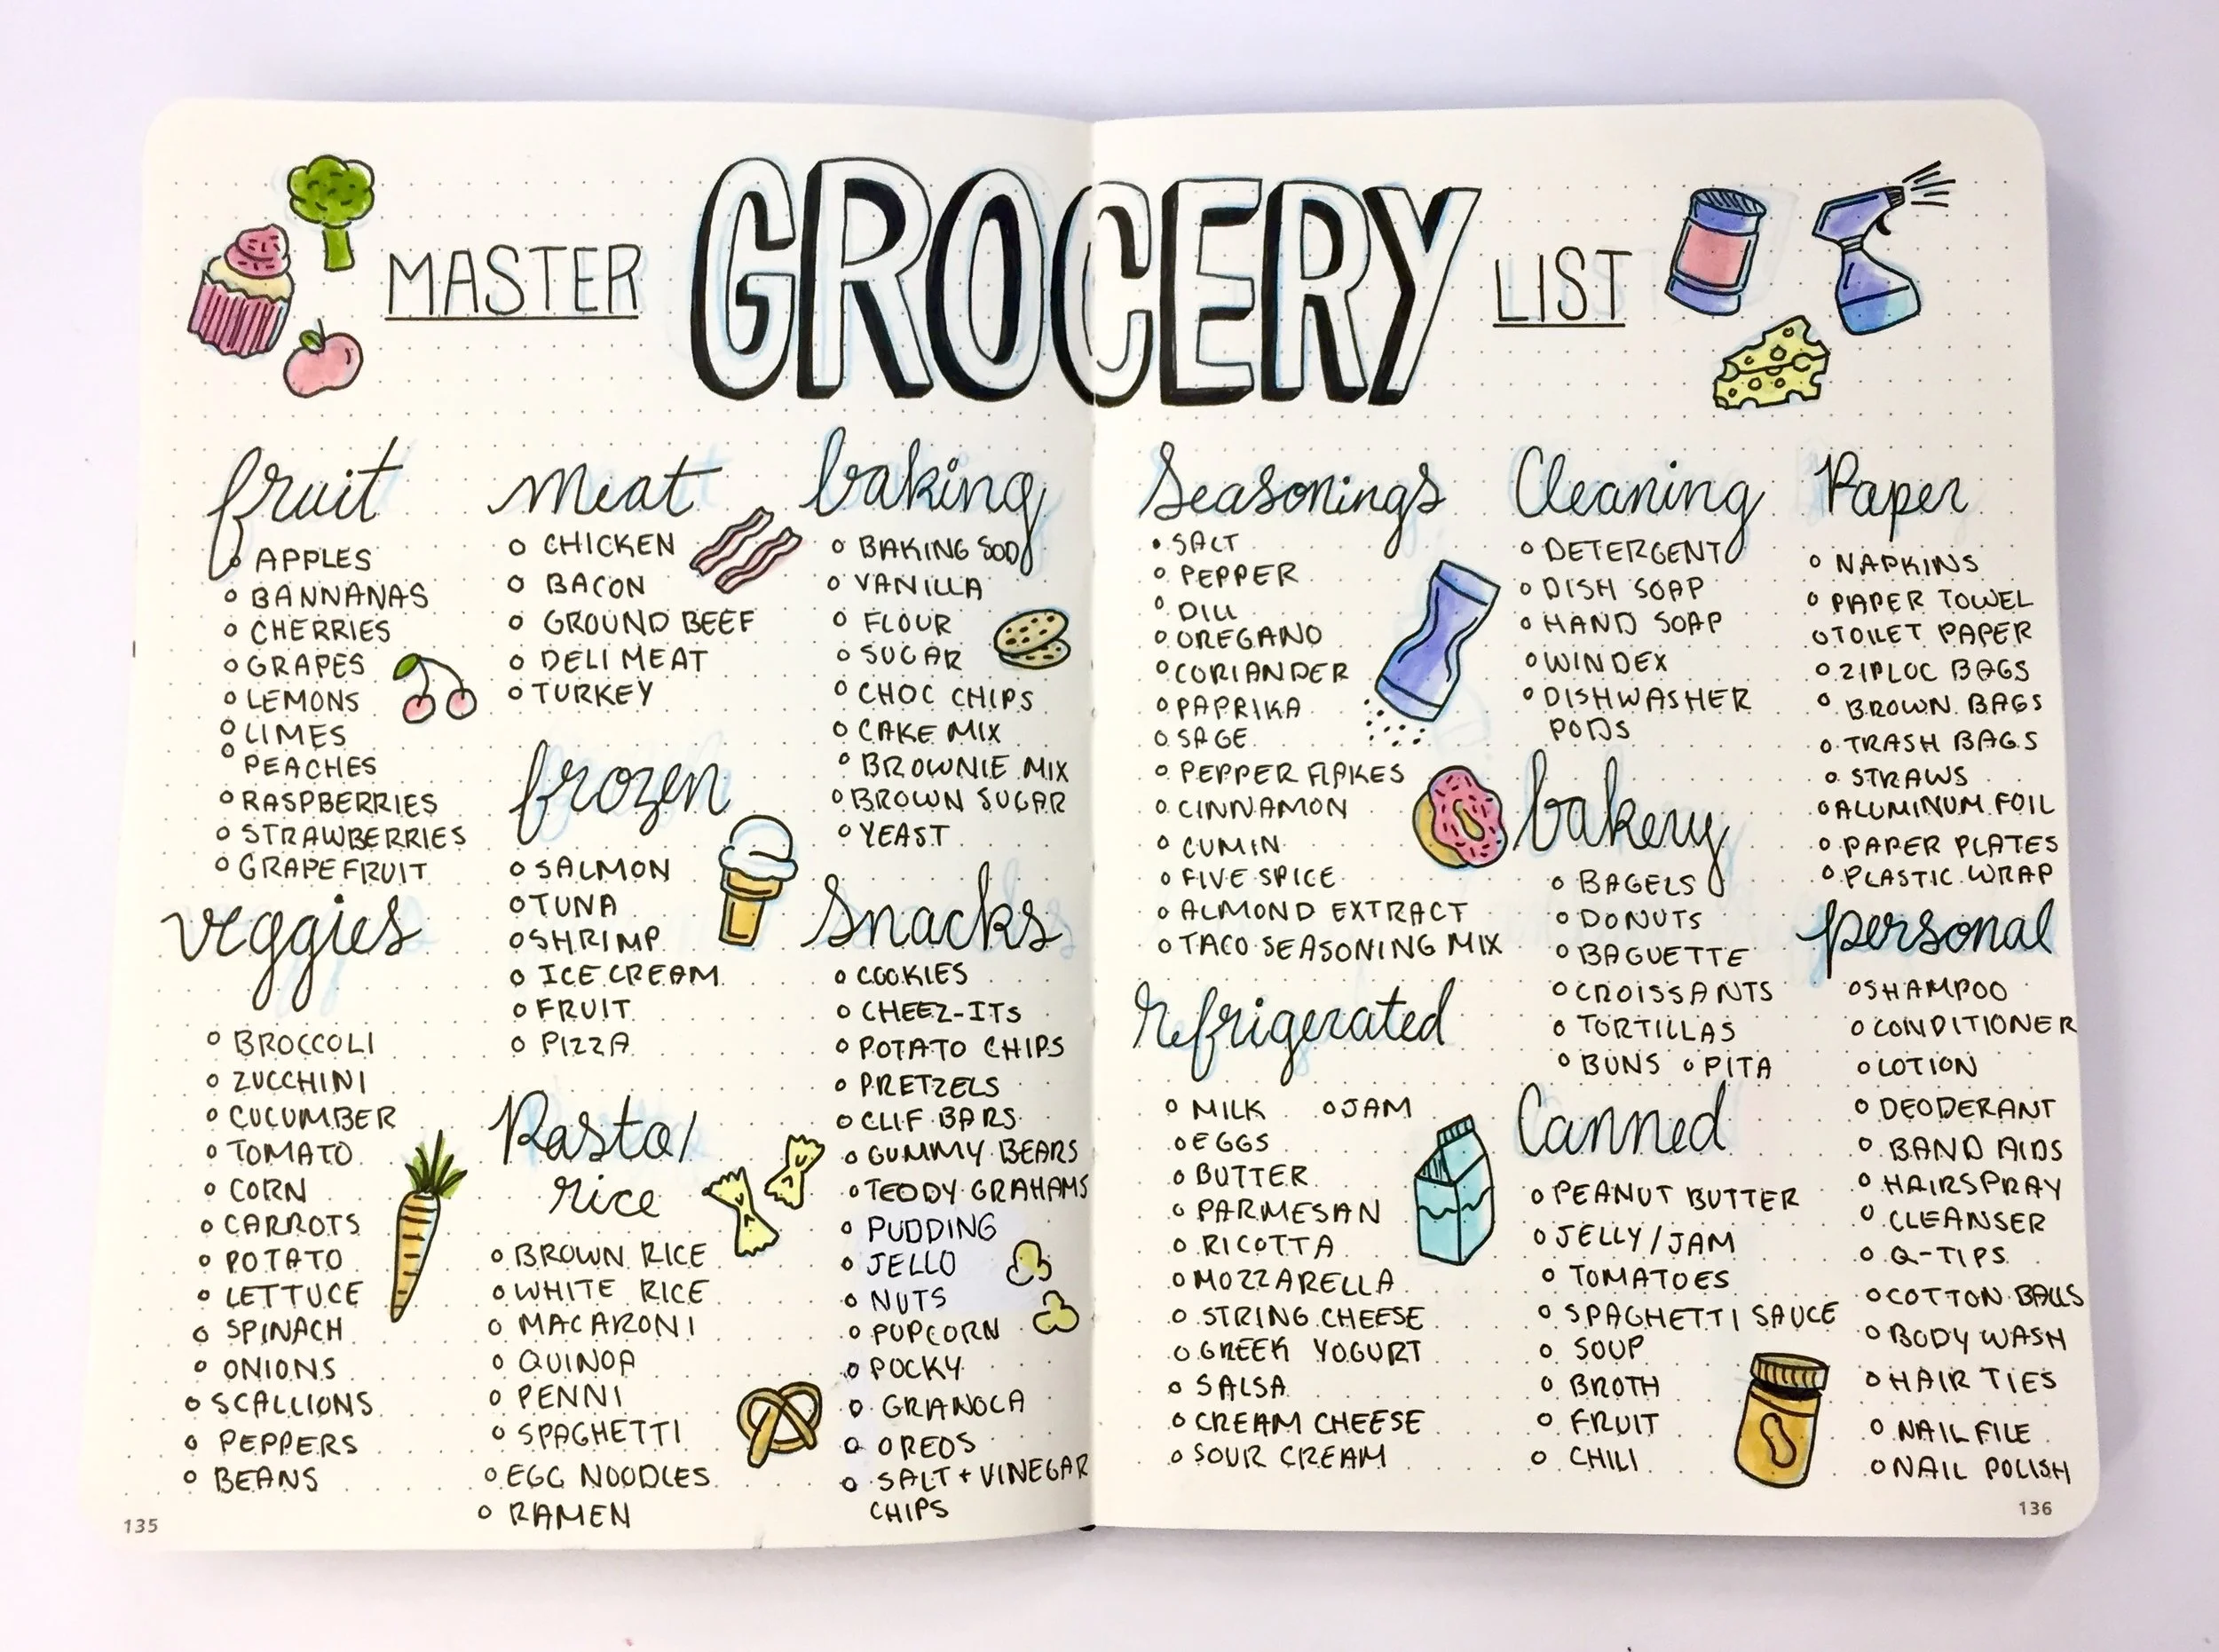 MASTER GROCERY LIST
fruit
APPLES
BANNANAS
CHERRIES
GRAPES
LEMONS
LIMES
PEACHES
RASPBERRIES
STRAWBERRIES
GRAPEFRUIT
veggies
BROCCOLI
ZUCCHINI
CUCUMBER
TOMATO
CORN
CARROTS
POTATO
LETTUCE
SPINACH
ONIONS
SCALLIONS
PEPPERS
BEANS
meat
CHICKEN
BACON
GROUND BEEF
DELI MEAT
TURKEY
frozen
SALMON
TUNA
SHRIMP
ICE CREAM
FRUIT
PIZZA
Pasta/
rice
BROWN RICE
WHITE RICE
MACARONI
QUINOA
PENNI
SPAGHETTI
EGG NOODLES
RAMEN
baking
BAKING SODA
VANILLA
FLOUR
SUGAR
CHOC CHIPS
CAKE MIX
BROWNIE MIX
BROWN SUGAR
YEAST
Snacks
COOKIES
CHEEZ-ITS
POTATO CHIPS
PRETZELS
CLIF BARS
GUMMY BEARS
TEDDY GRAHAMS
PUDDING
JELLO
NUTS
POPCORN
POCKY
GRANOLA
OREOS
SALT + VINEGAR
CHIPS
135
Seasonings
SALT
PEPPER
DILL
OREGANO
CORIANDER
PAPRIKA
SAGE
PEPPER FLAKES
CINNAMON
CUMIN
FIVE SPICE
ALMOND EXTRACT
TACO SEASONING MIX
refrigerated
MILK JAM
EGGS
BUTTER
PARMESAN
RICOTTA
MOZZARELLA
STRING CHEESE
GREEK YOGURT
SALSA
CREAM CHEESE
SOUR CREAM
Cleaning
DETERGENT
DISH SOAP
HAND SOAP
WINDEX
DISHWASHER
PODS
bakery
BAGELS
DONUTS
BAGUETTE
CROISSANTS
TORTILLAS
BUNS PITA
Canned
PEANUT BUTTER
JELLY/JAM
TOMATOES
SPAGHETTI SAUCE
SOUP
BROTH
FRUIT
CHILI
Paper
NAPKINS
PAPER TOWEL
TOILET PAPER
ZIPLOC BAGS
BROWN BAGS
TRASH BAGS
STRAWS
ALUMINUM FOIL
PAPER PLATES
PLASTIC WRAP
personal
SHAMPOO
CONDITIONER
LOTION
DEODERANT
BAND AIDS
HAIRSPRAY
CLEANSER
Q-TIPS
COTTON BALLS
BODY WASH
HAIR TIES
NAIL FILE
NAIL POLISH
136